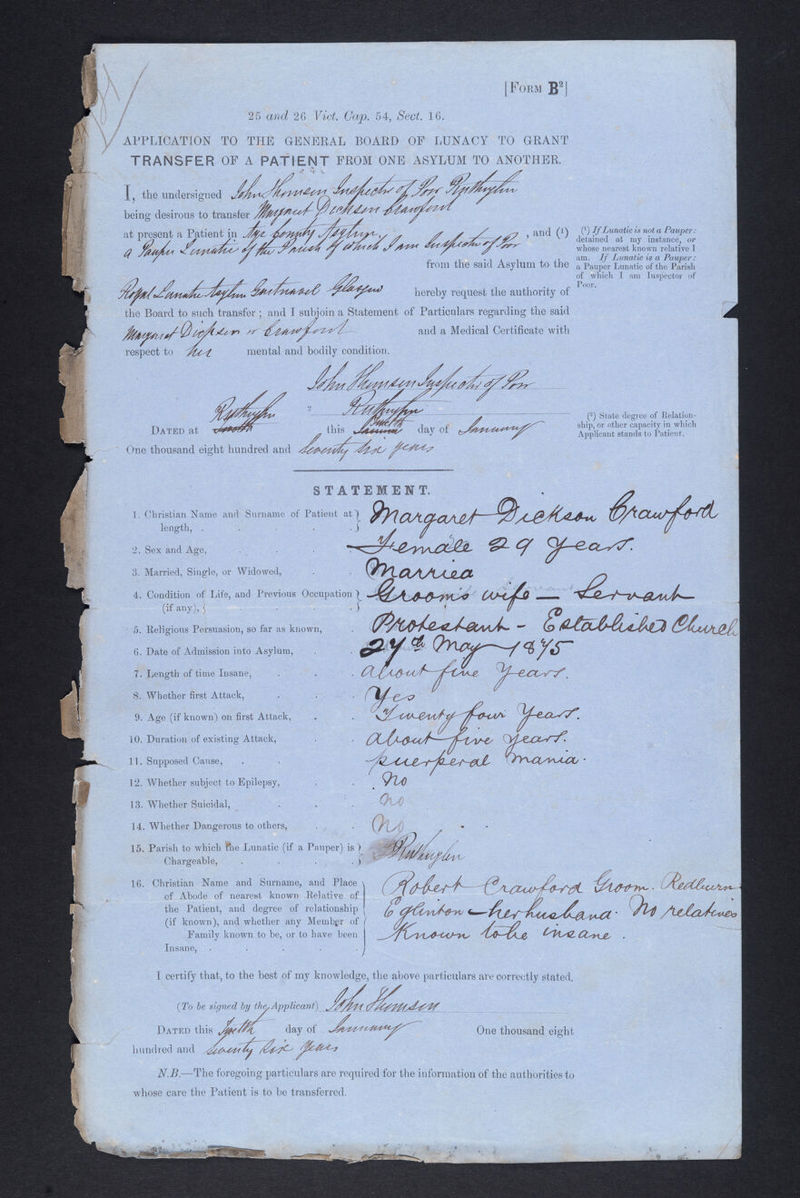 [FORM B²]
25 and 26 Vict. Cap. 54, Sect. 16.
APPLICATION TO THE GENERAL BOARD OF LUNACY TO GRANT
TRANSFER OF A PATIENT FROM ONE ASYLUM TO ANOTHER.
I, the undersigned John Thomson Inspector of Poor Rutherglen
being desirous to transfer Margaret Dickson Crawford
at present a Patient in Ayr County Asylum, and (¹)
a Pauper Lunatic of the Parish of which I am Inspector of Poor
from the said Asylum to the
Royal Lunatic Asylum Gartnavel Glasgow hereby request the authority of
the Board to such transfer; and I subjoin a Statement of Particulars regarding the said
Margaret Dickson or Crawford and a Medical Certificate with
respect to her mental and bodily condition.
(¹) If Lunatic is not a Pauper:
detained at my instance, or
whose nearest known relative I
am. If Lunatic is a Pauper:
a Pauper Lunatic of the Parish
of which I am Inspector of
Poor.
John Thomson Inspector of Poor
² Rutherglen
(²) State degree of Relation-
ship, or other capacity in which
Applicant stands to Patient.
Rutherglen
DATED at this Twelfth day of January
One thousand eight hundred and Seventy six years
STATEMENT.
1. Christian Name and Surname of Patient at length, . Margaret Dickson Crawford
2. Sex and Age, Female 29 Years.
3. Married, Single, or Widowed, Married
4. Condition of Life, and Previous Occupation (if any), Grooms wife — Servant
5. Religious Persuasion, so far as known, Protestant - Established Church
6. Date of Admission into Asylum, 27th May 1875
7. Length of time Insane, about five Years.
8. Whether first Attack, Yes
9. Age (if known) on first Attack, Twenty four Years.
10. Duration of existing Attack, about five years.
11. Supposed Cause, puerperal mania.
12. Whether subject to Epilepsy, No
13. Whether Suicidal, No
14. Whether Dangerous to others, No
15. Parish to which the Lunatic (if a Pauper) is Chargeable, Rutherglen
16. Christian Name and Surname, and Place
of Abode of nearest known Relative of
the Patient, and degree of relationship
(if known), and whether any Member of
Family known to be, or to have been
Insane,
Robert Crawford Groom. Redburn
Eglinton — her husband. No relatives
Known to be insane.
I certify that, to the best of my knowledge, the above particulars are correctly stated.
(To be signed by the Applicant) John Thomson
DATED this Twelfth day of January One thousand eight
hundred and Seventy six years
N.B.—The foregoing particulars are required for the information of the authorities to
whose care the Patient is to be transferred.